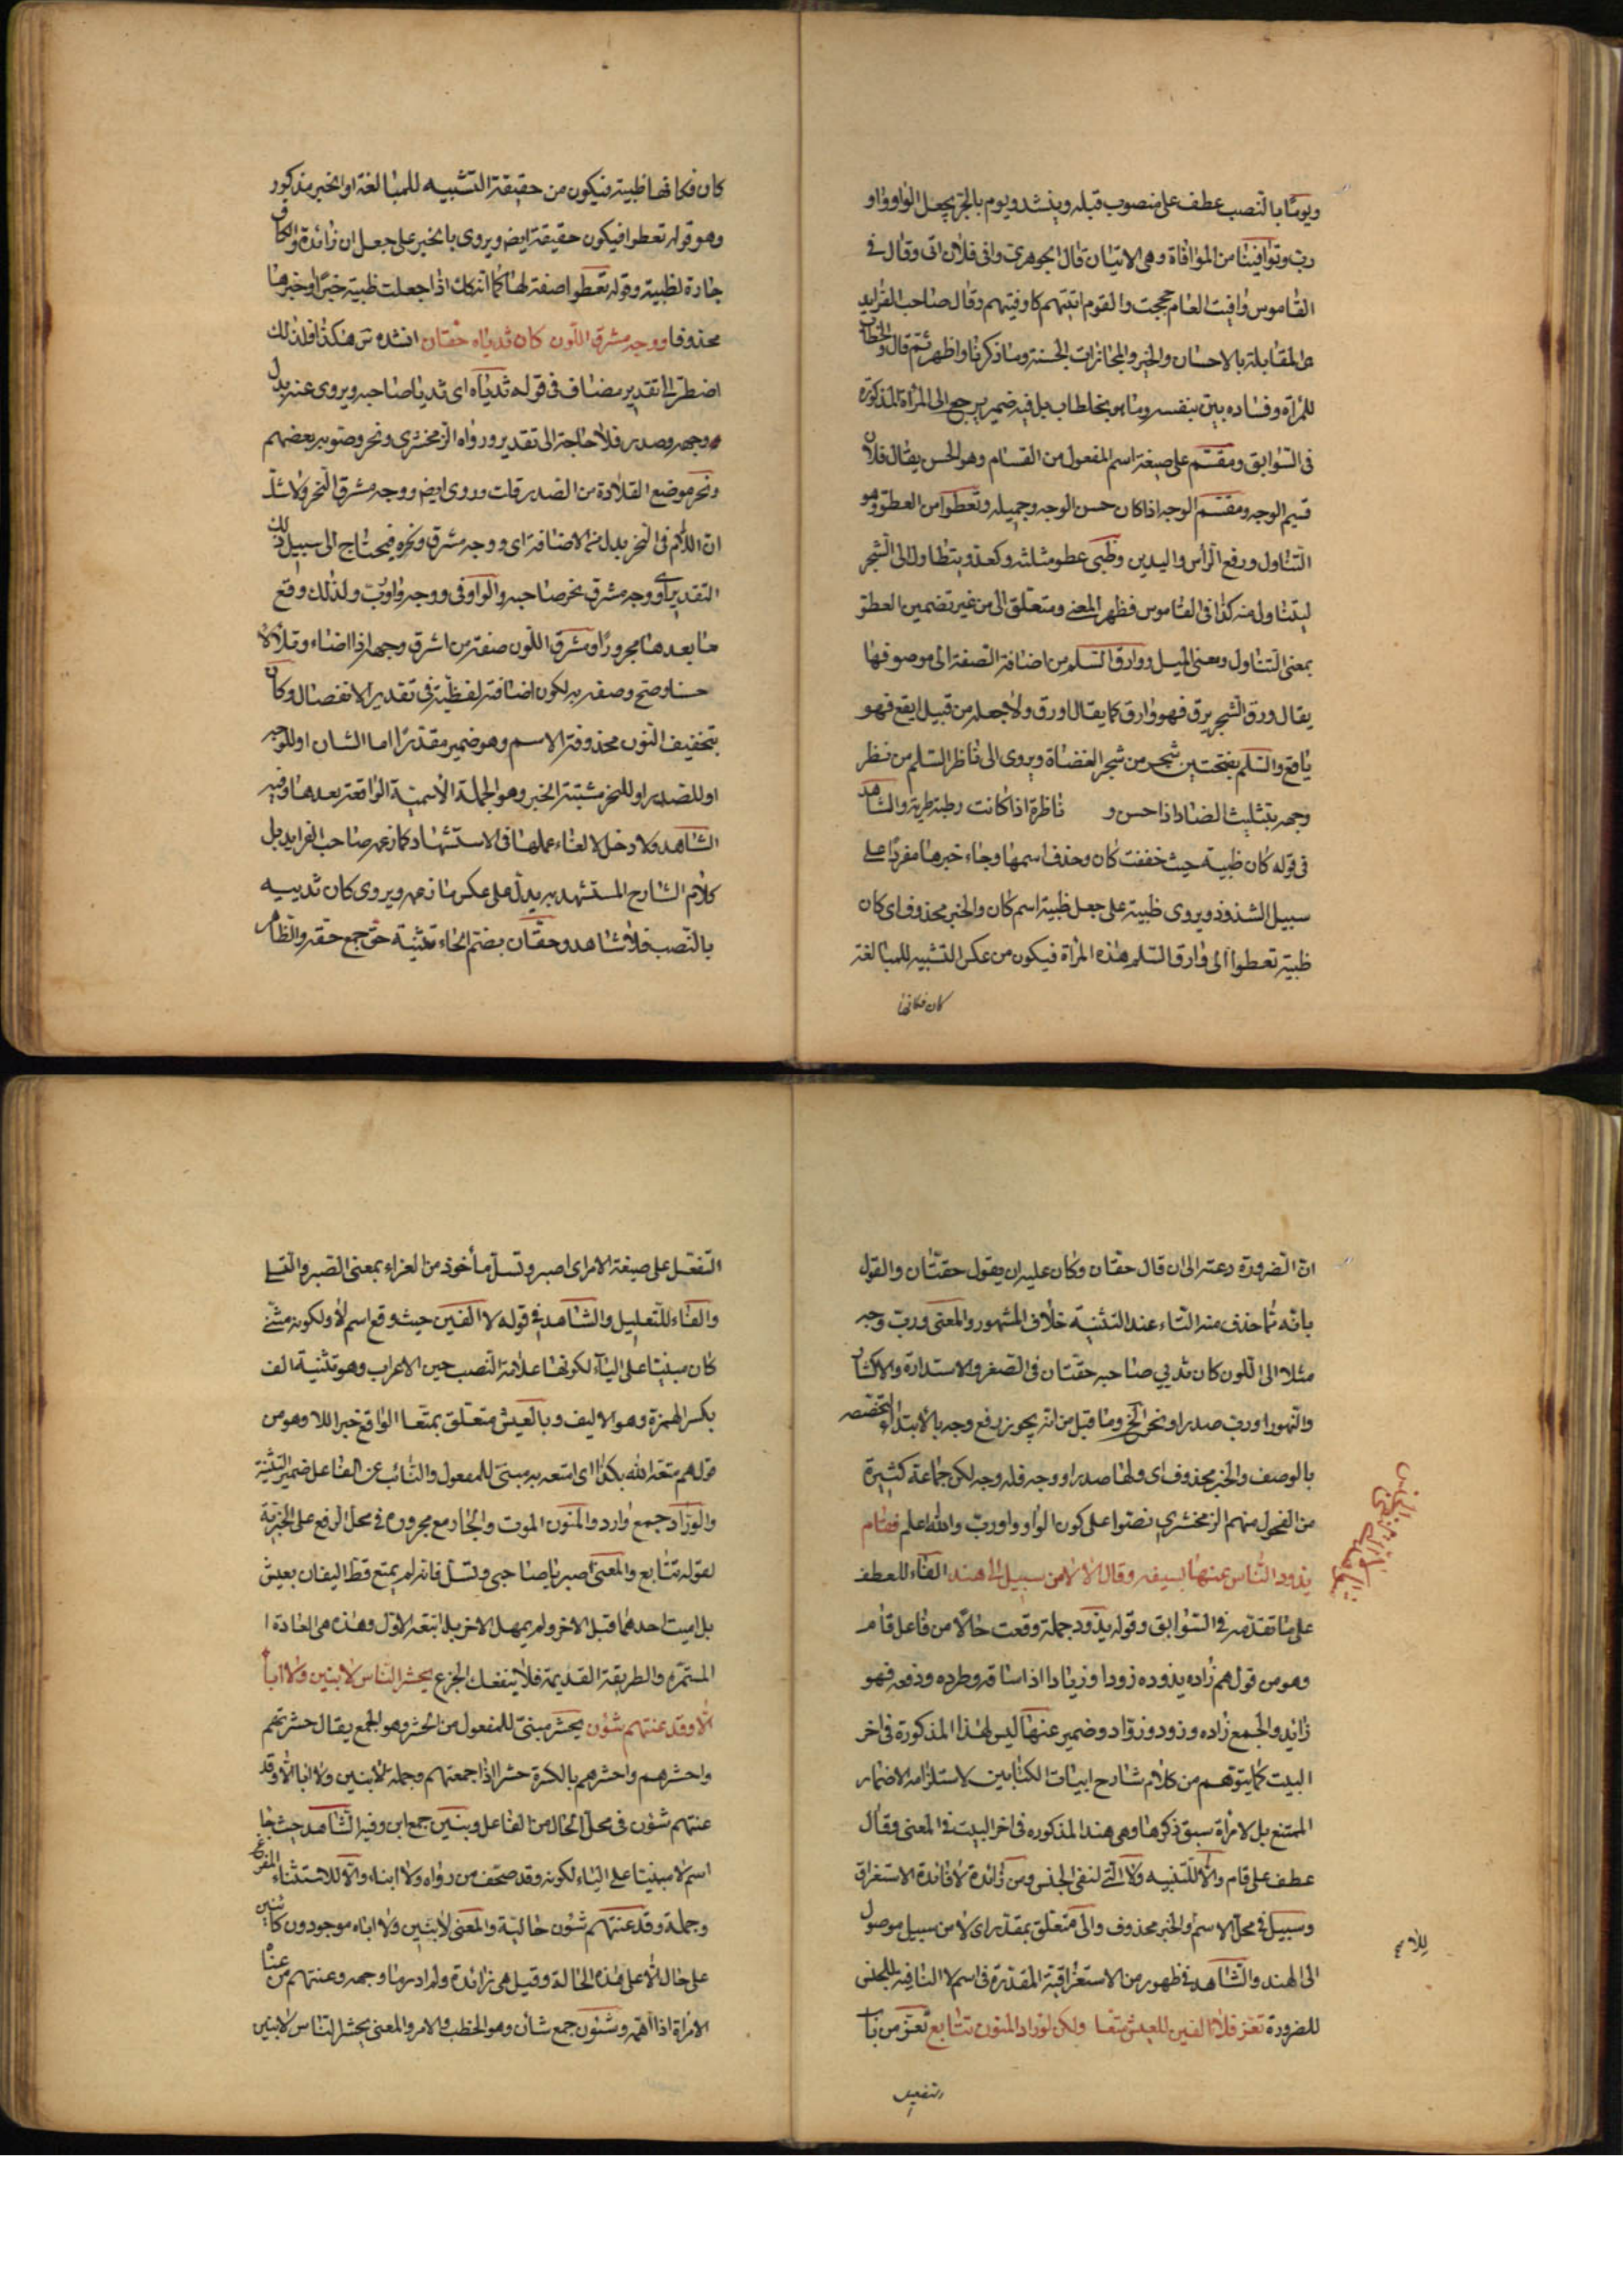 ويومًا بالنصب عطف على منصوب قبله وينشد ويوم بالجر بجعل الواو واو
رب وتوافينا من الموافاة وهى الاتيان قال الجوهري وافى فلان اتى وقال في
القاموس وافيت العام حججت والقوم اتيتهم كاوفيتهم وقال صاحب الفرايد
هى المقابلة بالاحسان والخير والمجازات الحسنة وما ذكرنا واظهر ثم قال والخطاب
للمرأة وفساده بين بنفسه وما هو بخاطاب بل فيه ضمير يرجع الى المرأة المذكورة
في السوابق ومقسّم على صيغة اسم المفعول من القسام وهو الحسن يقال فلان
قسيم الوجه ومقسم الوجه اذا كان حسن الوجه وجميله وتعطوا من العطو وهو
التناول ورفع الرأس واليدين وظبى عطو مثلثه وكعدو يتطاول الى الشجر
ليتناول منه كذا في القاموس فظهر المعنى ومتعلق الى من غير تضمين العطو
بمعنى التناول ومعنى الميل ووارق السلم من اضافة الصفة الى موصوفها
يقال ورق الشجر يرق فهو وارق كما يقال اورق ولا جعله من قبيل ايفع فهو
يافع والسلم بفتحتين شجر من شجر الغضاة ويروى الى ناظر السلم من نظر
وجهه بتثليث الضاد اذا حسن و ناظرة اذا كانت رطبة طرية والشاهد
في قوله كان ظبية حيث خففت كان وحذف اسمها وجاء خبرها مفردا على
سبيل الشذوذ ويروى ظبية على جعل ظبية اسم كان والخبر محذوف اى كان
ظبية تعطوا الى وارق السلم هذه المرأة فيكون من عكس التشبيه للمبالغة
كان فكانها
كان فكانها ظبية فيكون من حقيقة التشبيه للمبالغة او الخبر مذكور
وهو قوله تعطوا فيكون حقيقة ايضا ويروى بالخبر على جعل ان زائدة والكاف
جارة لظبية وقوله تعطوا صفة لها كما انه كك اذا جعلت ظبية خبرًا وخبرها
محذوفا ووجه مشرق اللون كان ثدياه حقان انشده س هكذا فلذلك
اضطر الى تقدير مضاف في قوله ثدياه اى ثديا صاحبه ويروى عنه بدل
وجهه وصدر فلا حاجة الى تقدير ورواه الزمخشرى ونحر وصوبه بعضهم
ونحر موضع القلادة من الصدر قلت وروى ايضا ووجه مشرق النحر ولا شك
ان اللام في النحر بدل من الاضافة اى ووجه مشرق ونحره فيحتاج الى سبيل ذلك
التقدير اى ووجه مشرق نحر صاحبه والواو فى ووجه واو رب ولذلك وقع
ما بعدها مجرورا ومشرق اللون صفة من اشرق وجهه اذا اضاء وتلألأ
حسنا وصح وصفه به لكون اضافته لفظية في تقدير الانفصال وكان
بتخفيف النون محذوفة الاسم وهو ضمير مقدّرًا اما الشان او للوجه
او للصدر او للنحر مثبتة الخبر وهو الجملة الاسمية الواقعة بعدها وفيه
الشاهد ولا دخل لالغاء عملها في الاستشهاد كما زعمه صاحب الفرايد بل
كلام الشارح المستشهد به يدل على عكس ما زعمه ويروى كان ثدييه
بالنصب فلا شاهد وحقان بضم الحاء تثنية حق جمع حقه والظاهر
ان الضرورة دعته الى ان قال حقان وكان عليه ان يقول حقتان والقول
بانه مما حذف منه التاء عند التثنية خلاف المشهور والمعنى ورب وجه
مثلا الى اللون كان ثديى صاحبه حقتان في الصغر والاستدارة والاكتناز
والنهود او رب صدر او نحر الخ وما قبل من انه يجوز رفع وجه بالابتداء لتخصصه
بالوصف والخبر محذوف اى ولها صدر او وجه فله وجه لكن جماعة كثيرة
من الفحول منهم الزمخشري نصّوا على كون الواو واو ربّ والله اعلم فقام
يذود الناس عنها بسيفه وقال الا لا من سبيل الى هند الفاء للعطف
على ما تقدّمه في السوابق وقوله يذود جملة وقعت حالا من فاعل قام
وهو من قولهم زاده يذوده زودا وزيادا اذا ساقه وطرده ودفعه فهو
زايد والجمع زاده وزود وزوّاد وضمير عنها ليس لهذا المذكورة في اخر
البيت كما يتوهم من كلام شارح ابيات الكتابين لاستلزامه الاضمار
الممتنع بل لامرأة سبق ذكرها وهى هند المذكوره في اخر البيت في المعنى وقال
عطف على قام والا للتنبيه ولا التى لنفى الجنس ومن زائدة لافائدة الاستغراق
وسبيل في محل الاسم والخبر محذوف والى متعلق بمقدر اى لا من سبيل موصول
الى الهند والشاهد في ظهور من الاستغراقية المقدّرة في اسم لا النافية للجنس
للضرورة تعزّ فلا الفين للعيش متّعا ولكن لورّاد المنون تتابع تعزّ من باب
التفعيل
التفعّل على صيغة الامر اى اصبر وتسلّ مأخوذ من العزاء بمعنى الصبر والتسلى
والفاء للتعليل والشاهد في قوله لا الفين حيث وقع اسم لا ولكونه مثنى
كان مبنيا على الياء لكونها علامة النصب حين الاعراب وهو تثنية الف
بكسر الهمزة وهو الاليف وبالعيش متعلق بمتّعا الواقع خبر اللا وهو من
قولهم متعه الله بكذا اى امتعه به مبنىّ للمفعول والنائب عن الفاعل ضمير التثنية
والورّاد جمع وارد والمنون الموت والجار مع مجروره في محل الرفع على الخبرية
لقوله تتابع والمعنى اصبر يا صاحبى وتسلّ فانه لم يمتع قط اليفان بعيش
بل اميت احدهما قبل الاخر ولم يمهل الاخر بل اتبعه الاول وهذه هى العادة ا
المستمرّة والطريقة القديمة فلا ينفعك الجزع يحشر الناس لا بنين ولا اباء
الّا وقد عنتهم شؤن يحشر مبنىّ للمفعول من الحشر وهو الجمع يقال حشرتهم
واحشرهم واحشرهم بالكسرة حشرا اذا جمعتهم وجملة لا بنين ولا ابا الا وقد
عنتهم شؤن في محل الحال من الفاعل وبنين جمع ابن وفيه الشاهد حيث جا
اسم لا مبنيا على الياء لكونه وقد صحف من رواه ولا ابناء والّا للاستثناء المفرغ
وجملة وقد عنتهم شؤن حالية والمعنى لا بنين ولا اباه موجودون كائنين
على حال الا على هذه الحالة وقيل هى زائدة ولم ادر ما وجهه وعنتهم من عنا
الامراة اذا اهمّه وشئون جمع شأن وهو الخطب والامر والمعنى يحشر الناس لا بنين